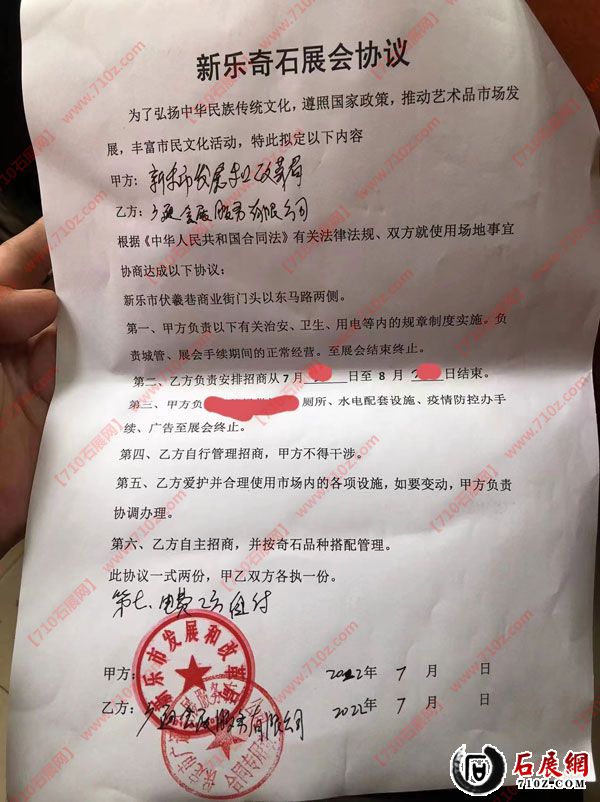 新乐奇石展会协议
为了弘扬中华民族传统文化，遵照国家政策，推动艺术品市场发
展，丰富市民文化活动，特此拟定以下内容
甲方：新乐市发展和改革局
乙方：会展服务有限公司
根据《中华人民共和国合同法》有关法律法规、双方就使用场地事宜
协商达成以下协议：
新乐市伏羲巷商业街门头以东马路两侧。
第一、甲方负责以下有关治安、卫生、用电等内的规章制度实施。负
责城管、展会手续期间的正常经营。至展会结束终止。
第二、乙方负责安排招商从7月 日至8月 日结束。
第三、甲方负 厕所、水电配套设施、疫情防控办手
续、广告至展会终止。
第四、乙方自行管理招商，甲方不得干涉。
第五、乙方爱护并合理使用市场内的各项设施，如要变动，甲方负责
协调办理。
第六、乙方自主招商，并按奇石品种搭配管理。
此协议一式两份，甲乙双方各执一份。
第七、电费乙方自付
新乐市发展和改革局
甲方： 2022年 7 月 日
乙方：会展服务有限公司 2022年 7 月 日
合同专用章
【710石展网】www.710z.com
石展網
710Z.COM